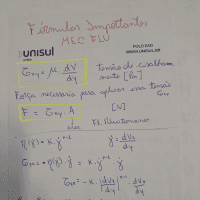 Fórmulas Importantes
MEC FLU
unisul
POLO EAD
τxy = μ. dV/dy
tensão de cisalha-
mento [Pa]
Força necessária para aplicar essa tensão
τxy
F = τxy. A
[N]
área
Fl. Newtoniano
η(γ̇) = K. γ̇ⁿ⁻¹
γ̇ = dVx/dy
τxy = η(γ̇). γ̇ = K. γ̇ⁿ⁻¹ γ̇
τxy = -K. |dVx/dy|ⁿ⁻¹ dVx/dy